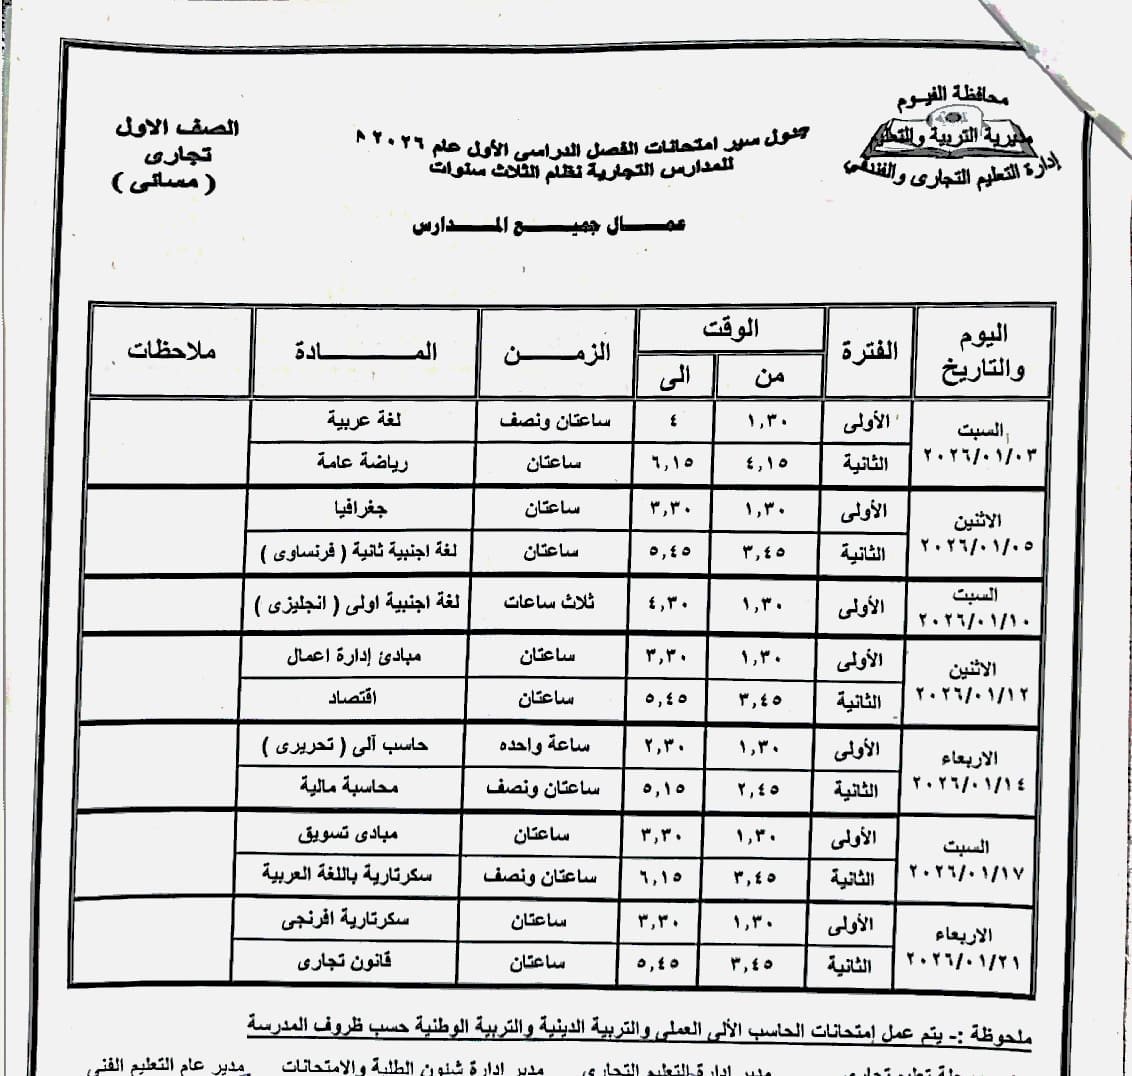 محافظة الفيوم
مديرية التربية والتعليم
إدارة التعليم التجارى والفندقي
جدول سير امتحانات الفصل الدراسى الأول عام ٢٠٢٦
للمدارس التجارية نظام الثلاث سنوات
عمـــال جميـــع المـــدارس
الصف الاول
تجارى
( مسائى )
اليوم والتاريخ | الفترة | الوقت | الزمـــن | المـــــــادة | ملاحظات
من | الى
السبت ٢٠٢٦/٠١/٠٣ | الأولى | ١,٣٠ | ٤ | ساعتان ونصف | لغة عربية
الثانية | ٤,١٥ | ٦,١٥ | ساعتان | رياضة عامة
الاثنين ٢٠٢٦/٠١/٠٥ | الأولى | ١,٣٠ | ٣,٣٠ | ساعتان | جغرافيا
الثانية | ٣,٤٥ | ٥,٤٥ | ساعتان | لغة اجنبية ثانية ( فرنساوى )
السبت ٢٠٢٦/٠١/١٠ | الأولى | ١,٣٠ | ٤,٣٠ | ثلاث ساعات | لغة اجنبية اولى ( انجليزى )
الاثنين ٢٠٢٦/٠١/١٢ | الأولى | ١,٣٠ | ٣,٣٠ | ساعتان | مبادئ إدارة اعمال
الثانية | ٣,٤٥ | ٥,٤٥ | ساعتان | اقتصاد
الاربعاء ٢٠٢٦/٠١/١٤ | الأولى | ١,٣٠ | ٢,٣٠ | ساعة واحده | حاسب آلى ( تحريرى )
الثانية | ٢,٤٥ | ٥,١٥ | ساعتان ونصف | محاسبة مالية
السبت ٢٠٢٦/٠١/١٧ | الأولى | ١,٣٠ | ٣,٣٠ | ساعتان | مبادى تسويق
الثانية | ٣,٤٥ | ٦,١٥ | ساعتان ونصف | سكرتارية باللغة العربية
الاربعاء ٢٠٢٦/٠١/٢١ | الأولى | ١,٣٠ | ٣,٣٠ | ساعتان | سكرتارية افرنجى
الثانية | ٣,٤٥ | ٥,٤٥ | ساعتان | قانون تجارى
ملحوظة :- يتم عمل إمتحانات الحاسب الألى العملى والتربية الدينية والتربية الوطنية حسب ظروف المدرسة
تعليم تجارى مدير إدارة التعليم التجارى مدير إدارة شئون الطلبة والامتحانات مدير عام التعليم الفنى